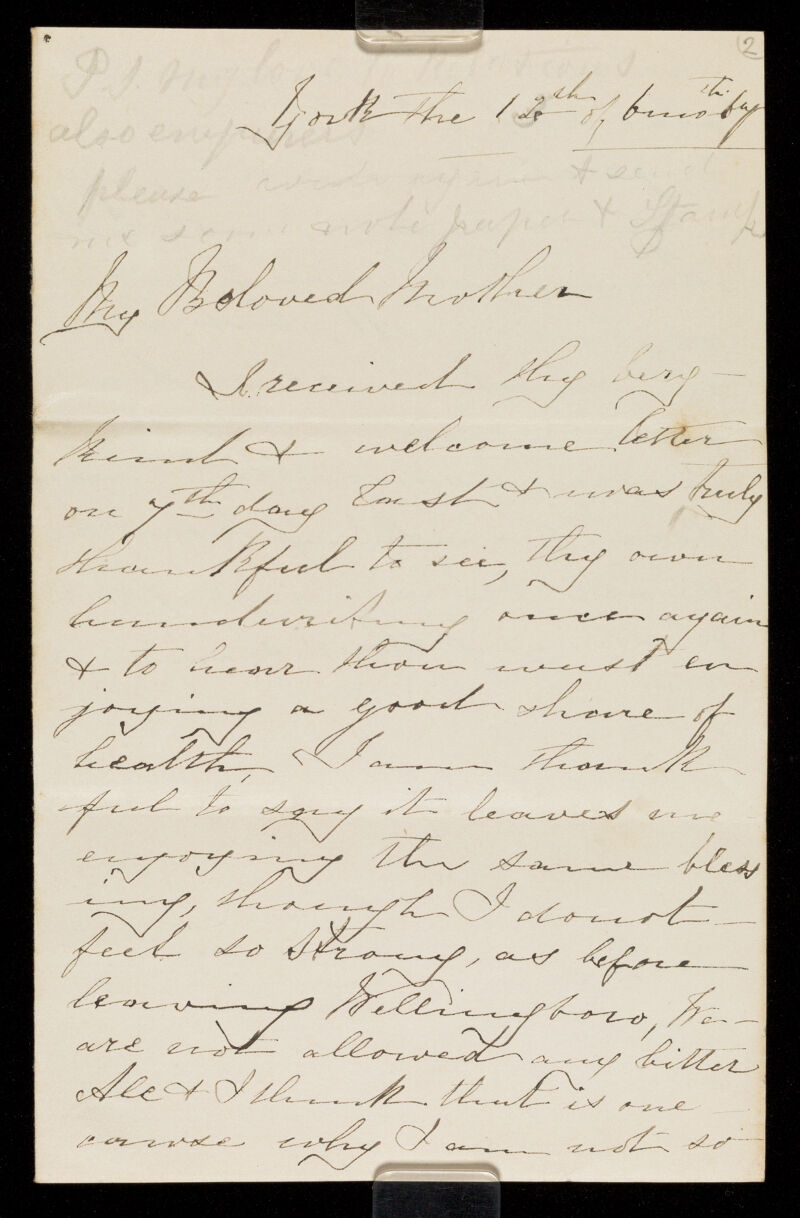 2
P.S. My love to Relations
also
please write again & send
me some note paper & Stamps
York the 12th of 6mo
My Beloved Mother
I received thy very
kind & welcome letter
on 7th day last & was truly
thankful to see, thy own
handwriting once again
& to hear thou wast en
joying a good share of
health, I am thank
ful to say it leaves me
enjoying the same bless
ing, though I do not
feel so strong, as before
leaving Wellingboro, We
are not allowed any bitter
Ale & I think that is one
cawse why I am not so